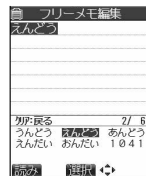 フリーメモ編集
えんどう
クリア:戻る 2/ 6
うんどう えんどう あんどう
えんだい おんだい 1041
読み 選択